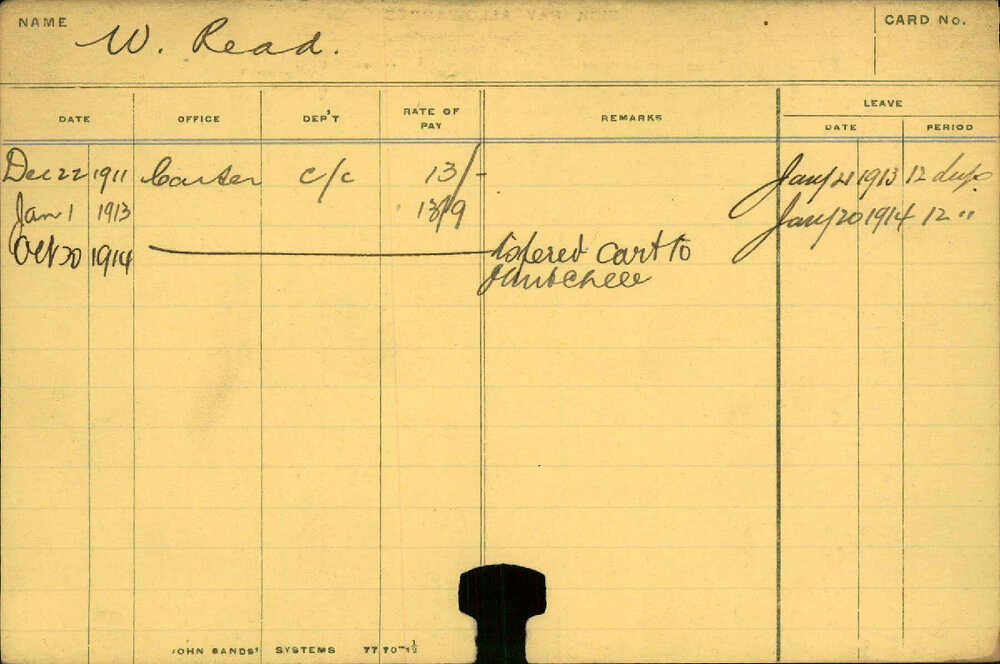 NAME W. Read. CARD No.
DATE OFFICE DEP'T RATE OF PAY REMARKS LEAVE
DATE PERIOD
Dec 22 1911 Carter c/c 13/- Jany 21 1913 12 days
Jan 1 1913 13/9 Jany 20 1914 12 "
Oct 30 1914 cart to
JOHN SANDS' SYSTEMS